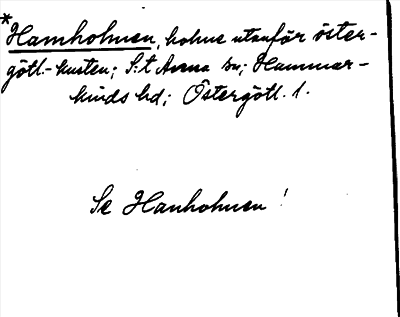 * Hamholmen, holme utanför öster-
götl.-kusten; S:t Anna sn; Hammar-
kinds hd; Östergötl. l.
Se Hanholmen!